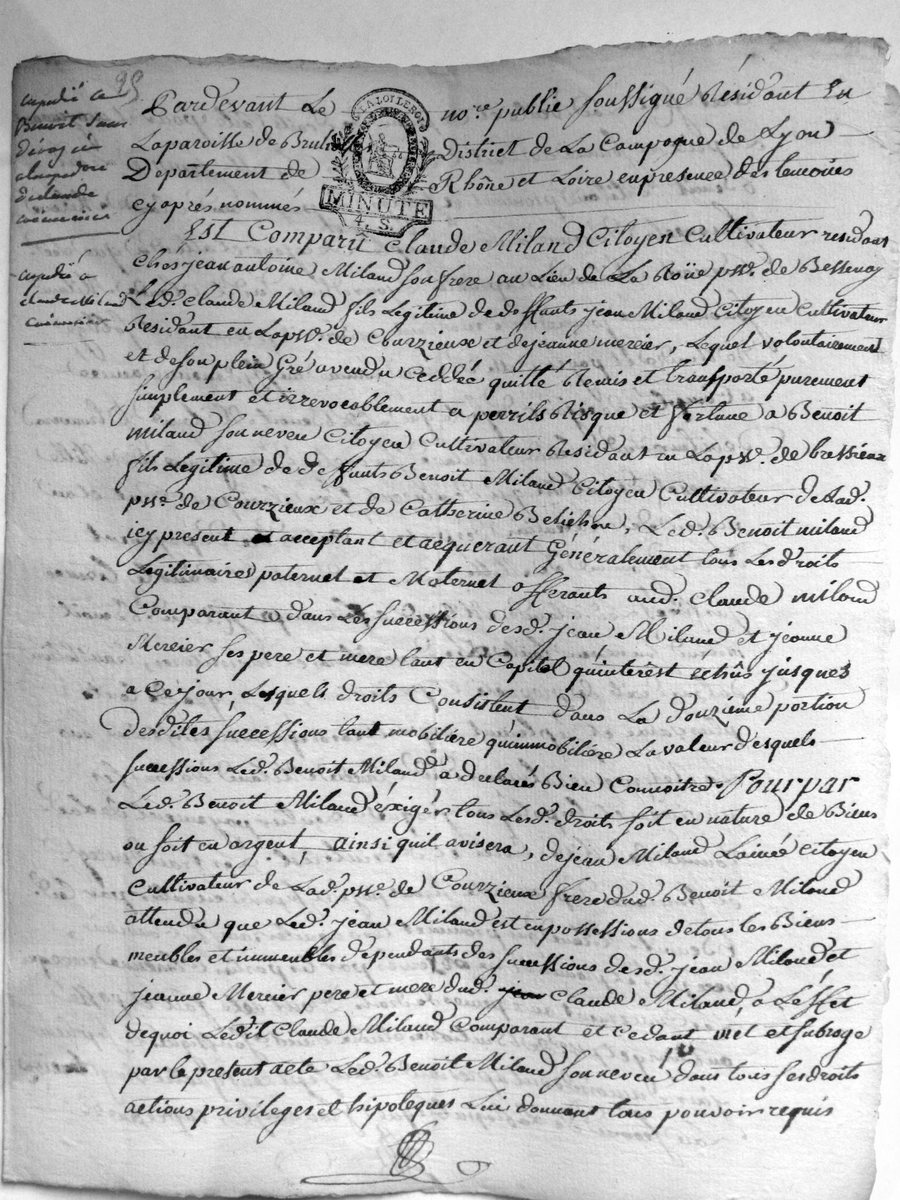 25
expedié a
Benoit
expedié a
claude Miland
Pardevant Le no.re public soussigné Résidant En
La paroisse de Brul District de La Campagne de Lyon
Departement de Rhône et Loire en presence des temoins
cy aprés nommés
LA LOI LE ROI
MINUTE
4. S.
Est Comparu Claude Miland Citoyen Cultivateur residant
Chés jean antoine Miland son frere au Lieu de La Roüe psse. de Bessenay
Led. Claude Miland fils Legitime de deffunts jean Miland Citoyen Cultivateur
Résidant en La psse. de Courzieux et de jeanne mercier, Lequel volontairement
et de son plein Gré a vendu Ceddé quitté Remis et transporté purement
simplement et irrevocablement a perrils Risque et fortune a Benoit
Miland son neveu Citoyen Cultivateur Résidant en La psse. de
fils Legitime de deffunts Benoit Miland Citoyen Cultivateur de Lad.
psse. de Courzieux et de Catherine Led. Benoit miland
icy present acceptant et acquerant Généralement tous Les droits
Legitimaires paternel et Maternel afferants aud. Claude Miland
Comparant dans Les successions desd. jean Miland et jeanne
Mercier ses pere et mere tant en Capital qu'interêt échûs jusques
a Ce jour, Lesquels droits Consistent dans La douzième portion
desdites successions tant mobiliére qu'immobiliére La valeur desquels
successions Led. Benoit Miland a declaré Bien Connoitre. Pour par
Led. Benoit Miland éxigér tous Lesd. droits soit en nature de Biens
ou soit en argent, ainsi quil avisera, de jean Miland Lainé Citoyen
Cultivateur de Lad. psse. de Courzieux frere dud. Benoit Miland
attendu que Led. jean Miland est en possessions de tous les Biens
meubles et immeubles dépendants des successions desd. jean Miland et
jeanne Mercier pere et mere dud. Claude Miland, à L'effet
de quoi Ledit Claude Miland Comparant et Cedant met et subroge
par le present acte Led. Benoit Miland son neveu dans tous ses droits
actions privileges et hipoteques Lui donnant tous pouvoir requis